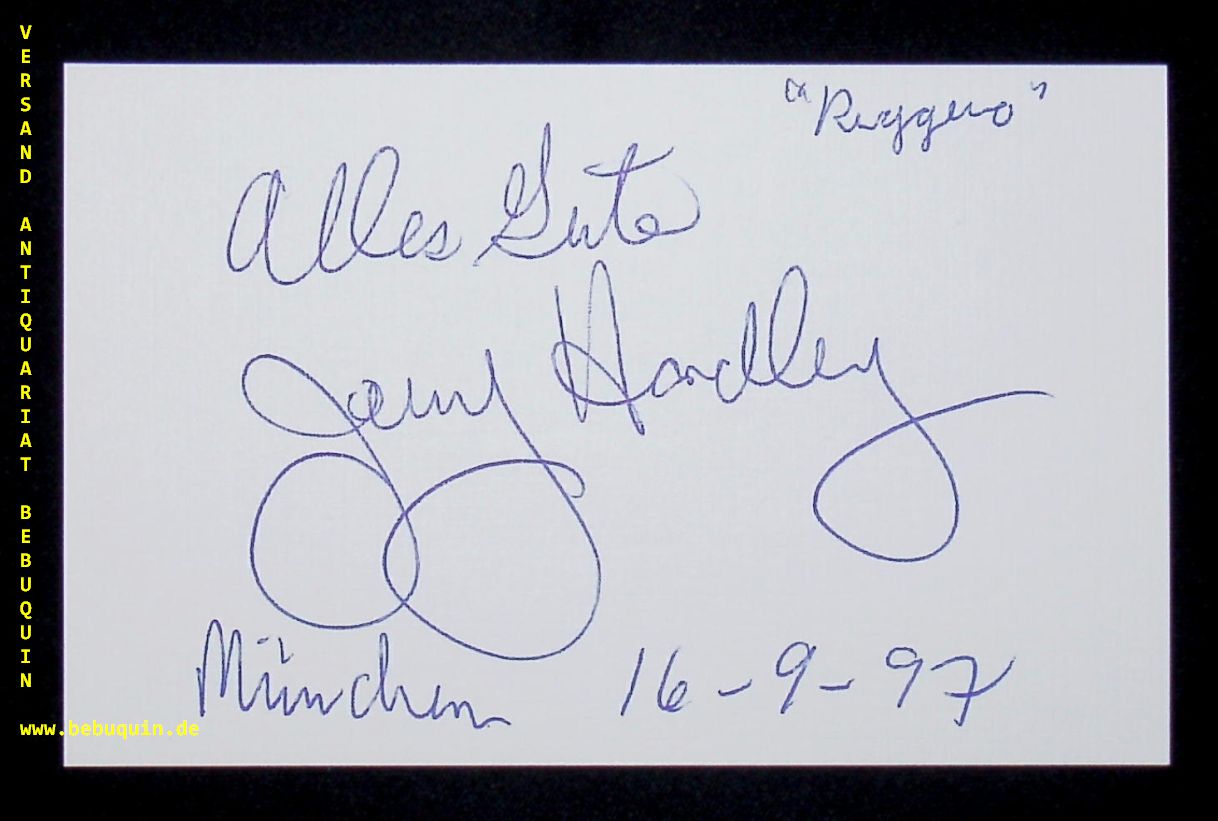 "Ruggero"
Alles Gute
Jerry Hadley
München 16-9-97
VERSAND ANTIQUARIAT BEBUQUIN
www.bebuquin.de